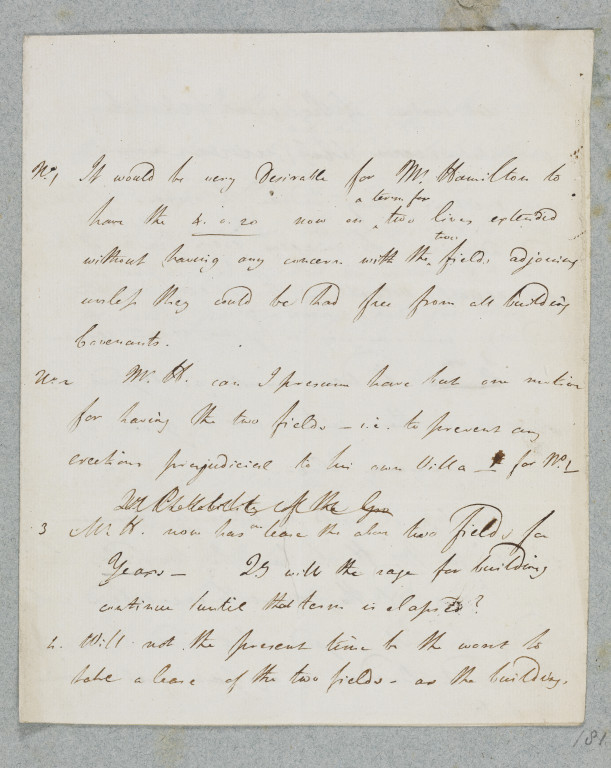 No. 1 It would be very Desirable for Mr. Hamilton to
a term for
have the 4. 0. 20 now on two lives extended
two
without having any concern with the fields adjoining
unless they could be had free from all building
Covenants.
No. 2 Mr. H. can I presume have but one motive
for having the two fields – i.e. to prevent any
erections prejudicial to his own Villa for No. 1
of the
3 Mr. H. now has on lease the above two fields for
Years – 2S will the rage for building
continue until that term is elapsed?
4. Will not the present time be the worst to
take a lease of the two fields – as the building,
181